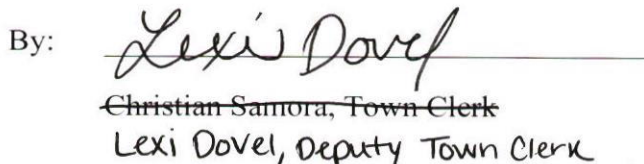 By: Lexi Dovel
Christian Samora, Town Clerk
Lexi Dovel, Deputy Town Clerk